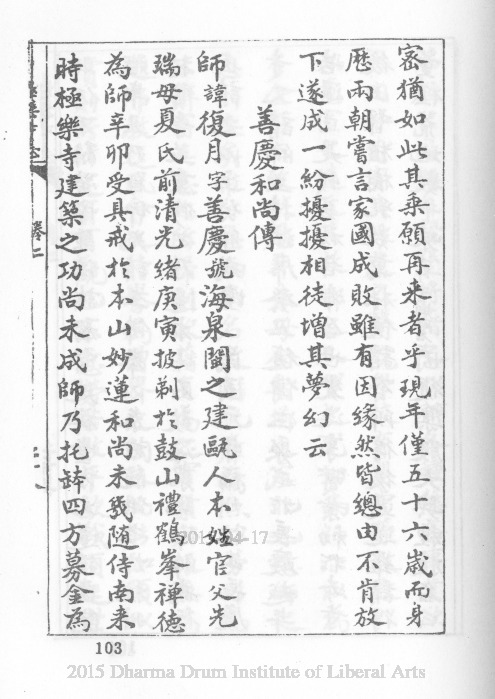 密猶如此其乘願再来者乎現年僅五十六歲而身
歷兩朝嘗言家國成敗雖有因緣然皆總由不肯放
下遂成一紛擾擾相徒增其夢幻云
善慶和尚傳
師諱復月字善慶號海泉閩之建甌人本姓官父先
瑞母夏氏前清光緒庚寅披剃於鼓山禮鶴峯禅德
為師辛卯受具戒於本山妙蓮和尚未幾随侍南来
時極樂寺建築之功尚未成師乃托缽四方募金為
卷二
103
2015 Dharma Drum Institute of Liberal Arts